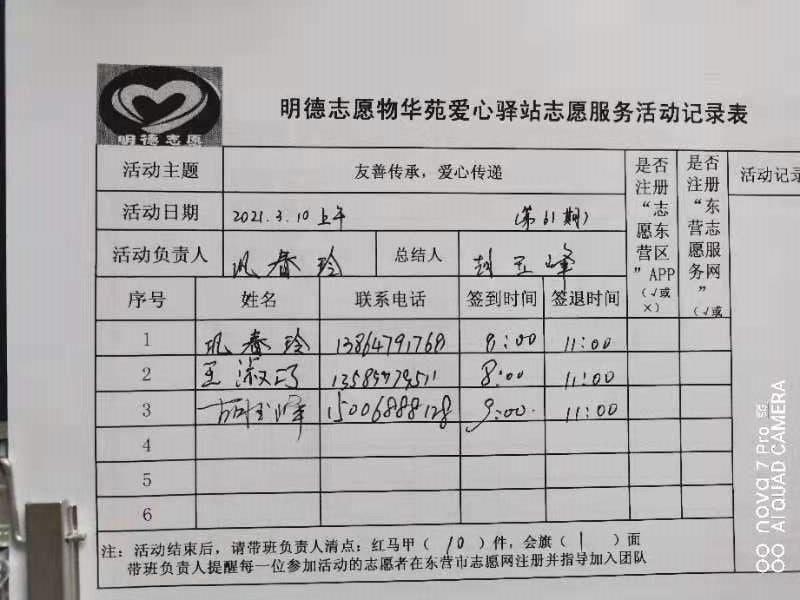 明德志愿
明德志愿物华苑爱心驿站志愿服务活动记录表
活动主题 友善传承，爱心传递 是否注册“志愿东营区”APP（√或×） 是否注册“东营志愿服务网”（√或 活动记录
活动日期 2021.3.10上午 (第61期)
活动负责人 巩春玲 总结人 峰
序号 姓名 联系电话 签到时间 签退时间
1 巩春玲 13864791768 8:00 11:00
2 王淑巧 8:00 11:00
3 峰 15006888128 9:00. 11:00
4
5
6
注：活动结束后，请带班负责人清点：红马甲（10）件，会旗（1）面
带班负责人提醒每一位参加活动的志愿者在东营市志愿网注册并指导加入团队
nova 7 Pro 5G
AI QUAD CAMERA